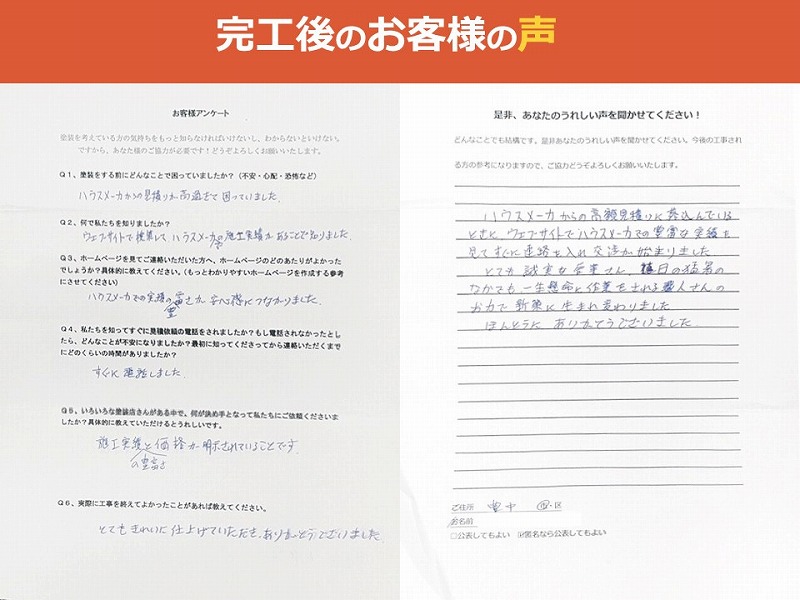 完工後のお客様の声
お客様アンケート
塗装を考えている方の気持ちをもっと知らなければいけないし、わからないといけない。
ですから、あなた様のご協力が必要です！どうぞよろしくお願いいたします。
Q1、塗装をする前にどんなことで困っていましたか？（不安・心配・恐怖など）
ハウスメーカからの見積りが高過ぎて困っていました。
Q2、何で私たちを知りましたか？
ウェブサイトで検索して、ハウスメーカの施工実績があることで知りました。
Q3、ホームページを見てご連絡いただいた方へ、ホームページのどのあたりがよかった
でしょうか？具体的に教えてください。（もっとわかりやすいホームページを作成する参考
にさせてください）
ハウスメーカでの実績の豊富さが安心感につながりました。
Q4、私たちを知ってすぐに見積依頼の電話をされましたか？もし電話されなかったとし
たら、どんなことが不安になりましたか？最初に知ってくださってから連絡いただくまで
にどのくらいの時間がありましたか？
すぐに連絡しました。
Q5、いろいろな塗装店さんがある中で、何が決め手となって私たちにご依頼くださいま
したか？具体的に教えていただけるとうれしいです。
施工実績の豊富さと価格が明示されていることです
Q6、実際に工事を終えてよかったことがあれば教えてください。
とてもきれいに仕上げていただき、ありがとうございました
是非、あなたのうれしい声を聞かせてください！
どんなことでも結構です。是非あなたのうれしい声を聞かせてください。今後の工事され
る方の参考になりますので、ご協力どうぞよろしくお願いいたします。
ハウスメーカからの高額見積りに落込んでいる
ときに、ウェブサイトでハウスメーカでの豊富な実績を
見てすぐに連絡を入れ交渉が始まりました
とても誠実な営業さん、連日の猛暑の
なかでも、一生懸命に作業をされる職人さんの
お力で新築に生まれ変わりました
ほんとうに ありがとうございました
ご住所 豊中 市・区
お名前
□公表してもよい ☑匿名なら公表してもよい